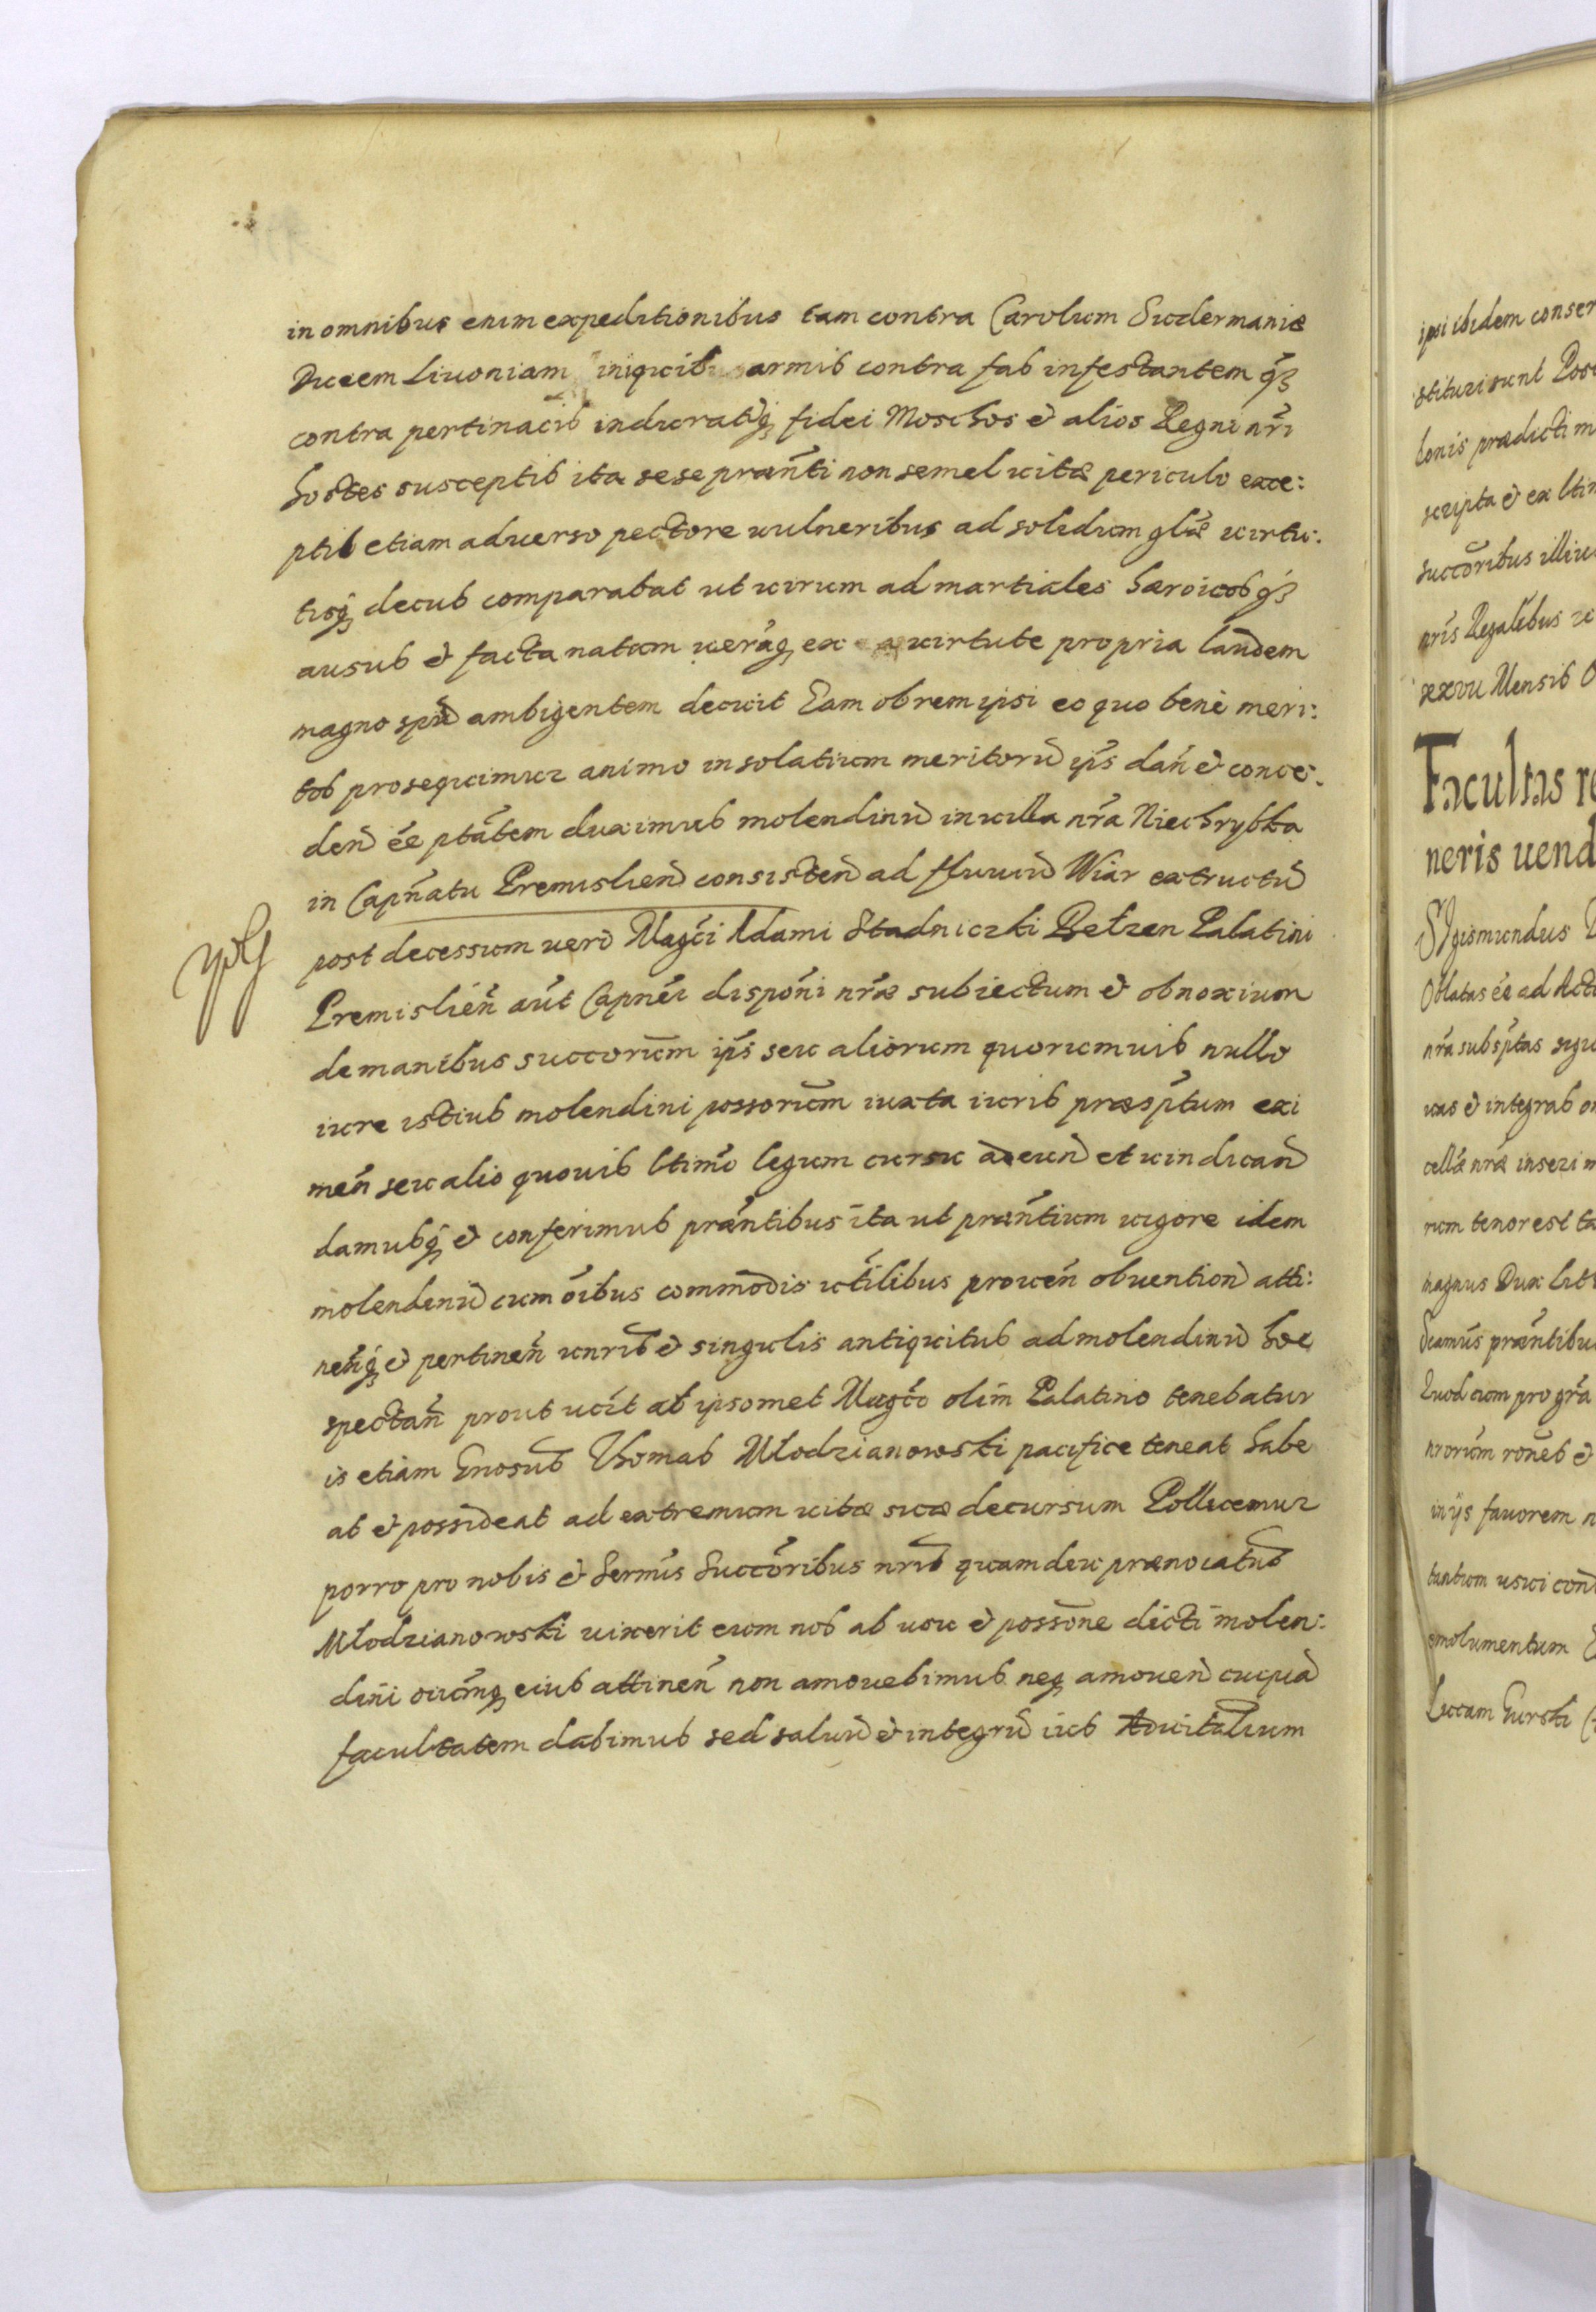 in omnibus enim expeditionibus tam contra Carolum Sudermaniæ
Ducem Liuoniam iniquis armis contra fas infestantem q́3
contra pertinacis induratq́ fidei Moschos et alios Regni nr̃i
hostes susceptis ita sese præn̄ti non semel uitæ periculo exce:
ptis etiam aduerso pectore uulneribus ad solidum gl̃æ uirtu:
tisq́ decus comparabat ut uirum ad martiales hæroicosq́3
ausus et facta natum ueráq ex uirtute propria laudem
magno spũ ambigentem decuit Eam ob rem ipsi eo quo bene meri:
tos prosequimur animo in solatium meritorũ ip̃s dan̄ et conce:
den̄ ẽe ptãtem duximus molendinũ in uilla nr̃a Niechrybka
in Capñatu Premislien̄ consisten̄ ad fluuiũ Wiar extructũ
post decessum uero Mag̃ci Adami Stadniczki Belzen Palatini
Premislień aũt Capñei dispõni nr̃æ subiectum et obnoxium
de manibus succorũm ip̃s seu aliorum quorumuis nullo
iure istius molendini possorũm iuxta iuris præsp̃tum exi
meñ seu alio quouis ltimõ legum cursu adeun̄ et uindican̄
damusq́ et conferimus præñtibus ita ut præñtium uigore idem
molendinũ cum õibus commõdis utilibus prouen̄ obuention̄ atti:
neñq́ et pertineñ uñris et singulis antiquitus ad molendinũ hoc
spectañ prout ucit ab ipsomet Mag̃co olim Palatino tenebatur
is etiam Gnosus Thomas Młodzianowski pacifice teneat habe
at et possideat ad extremum uitæ suæ decursum Pollicemur
porro pro nobis et Sermis Succõribus nr̃is quamdiu prænoiatus
Młodzianowski uixerit eum nos ab usu et possõne dicti molen:
dini oiũmq eius attineñ non amouebimus neq amouen̄ cuipiã
facultatem dabimus sed saluũ et integrũ ius Aduitalium
ipsi ibidem conser
lonis prædicti m
succõribus illiu
nr̃is Regalibus
xxvii Mensis O
Facultas re
neris uend
Sigismundus
Oblatas ẽe ad Acta
nr̃a subsp̃tas sigi
uas et integras
cellæ nr̃æ inseri
rum tenor est ta
magnus Dux Lit
præñtibu
Quod cum pro gr̃a
nrorũm ronẽs et
in ijs fauorem n
tantum usui con
emolumentum
Lucam Gurski